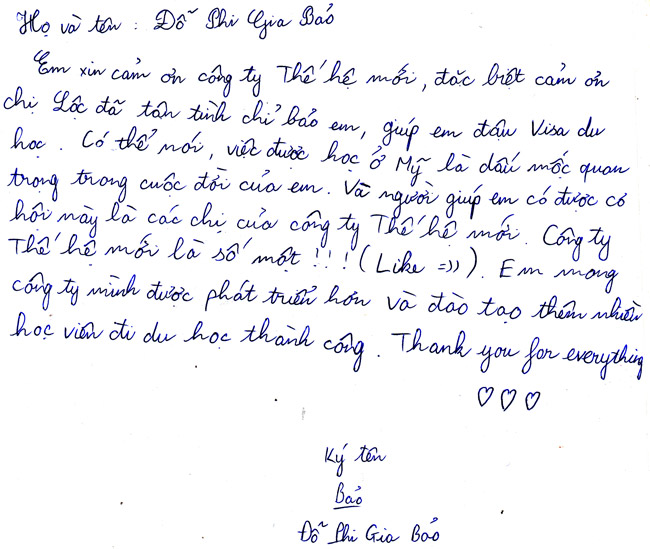 Họ và tên : Đỗ Phi Gia Bảo
Em xin cảm ơn công ty Thế hệ mới, đặc biệt cảm ơn
chị Lộc đã tận tình chỉ bảo em, giúp em đậu Visa du
học. Có thể nói, việc được học ở Mỹ là dấu mốc quan
trọng trong cuộc đời của em. Và người giúp em có được cơ
hội này là các chị của công ty Thế hệ mới. Công ty
Thế hệ mới là số một !!! (Like =)) ). Em mong
công ty mình được phát triển hơn và đào tạo thêm nhiều
học viên đi du học thành công. Thank you for everything
♡ ♡ ♡
Ký tên
Bảo
Đỗ Phi Gia Bảo